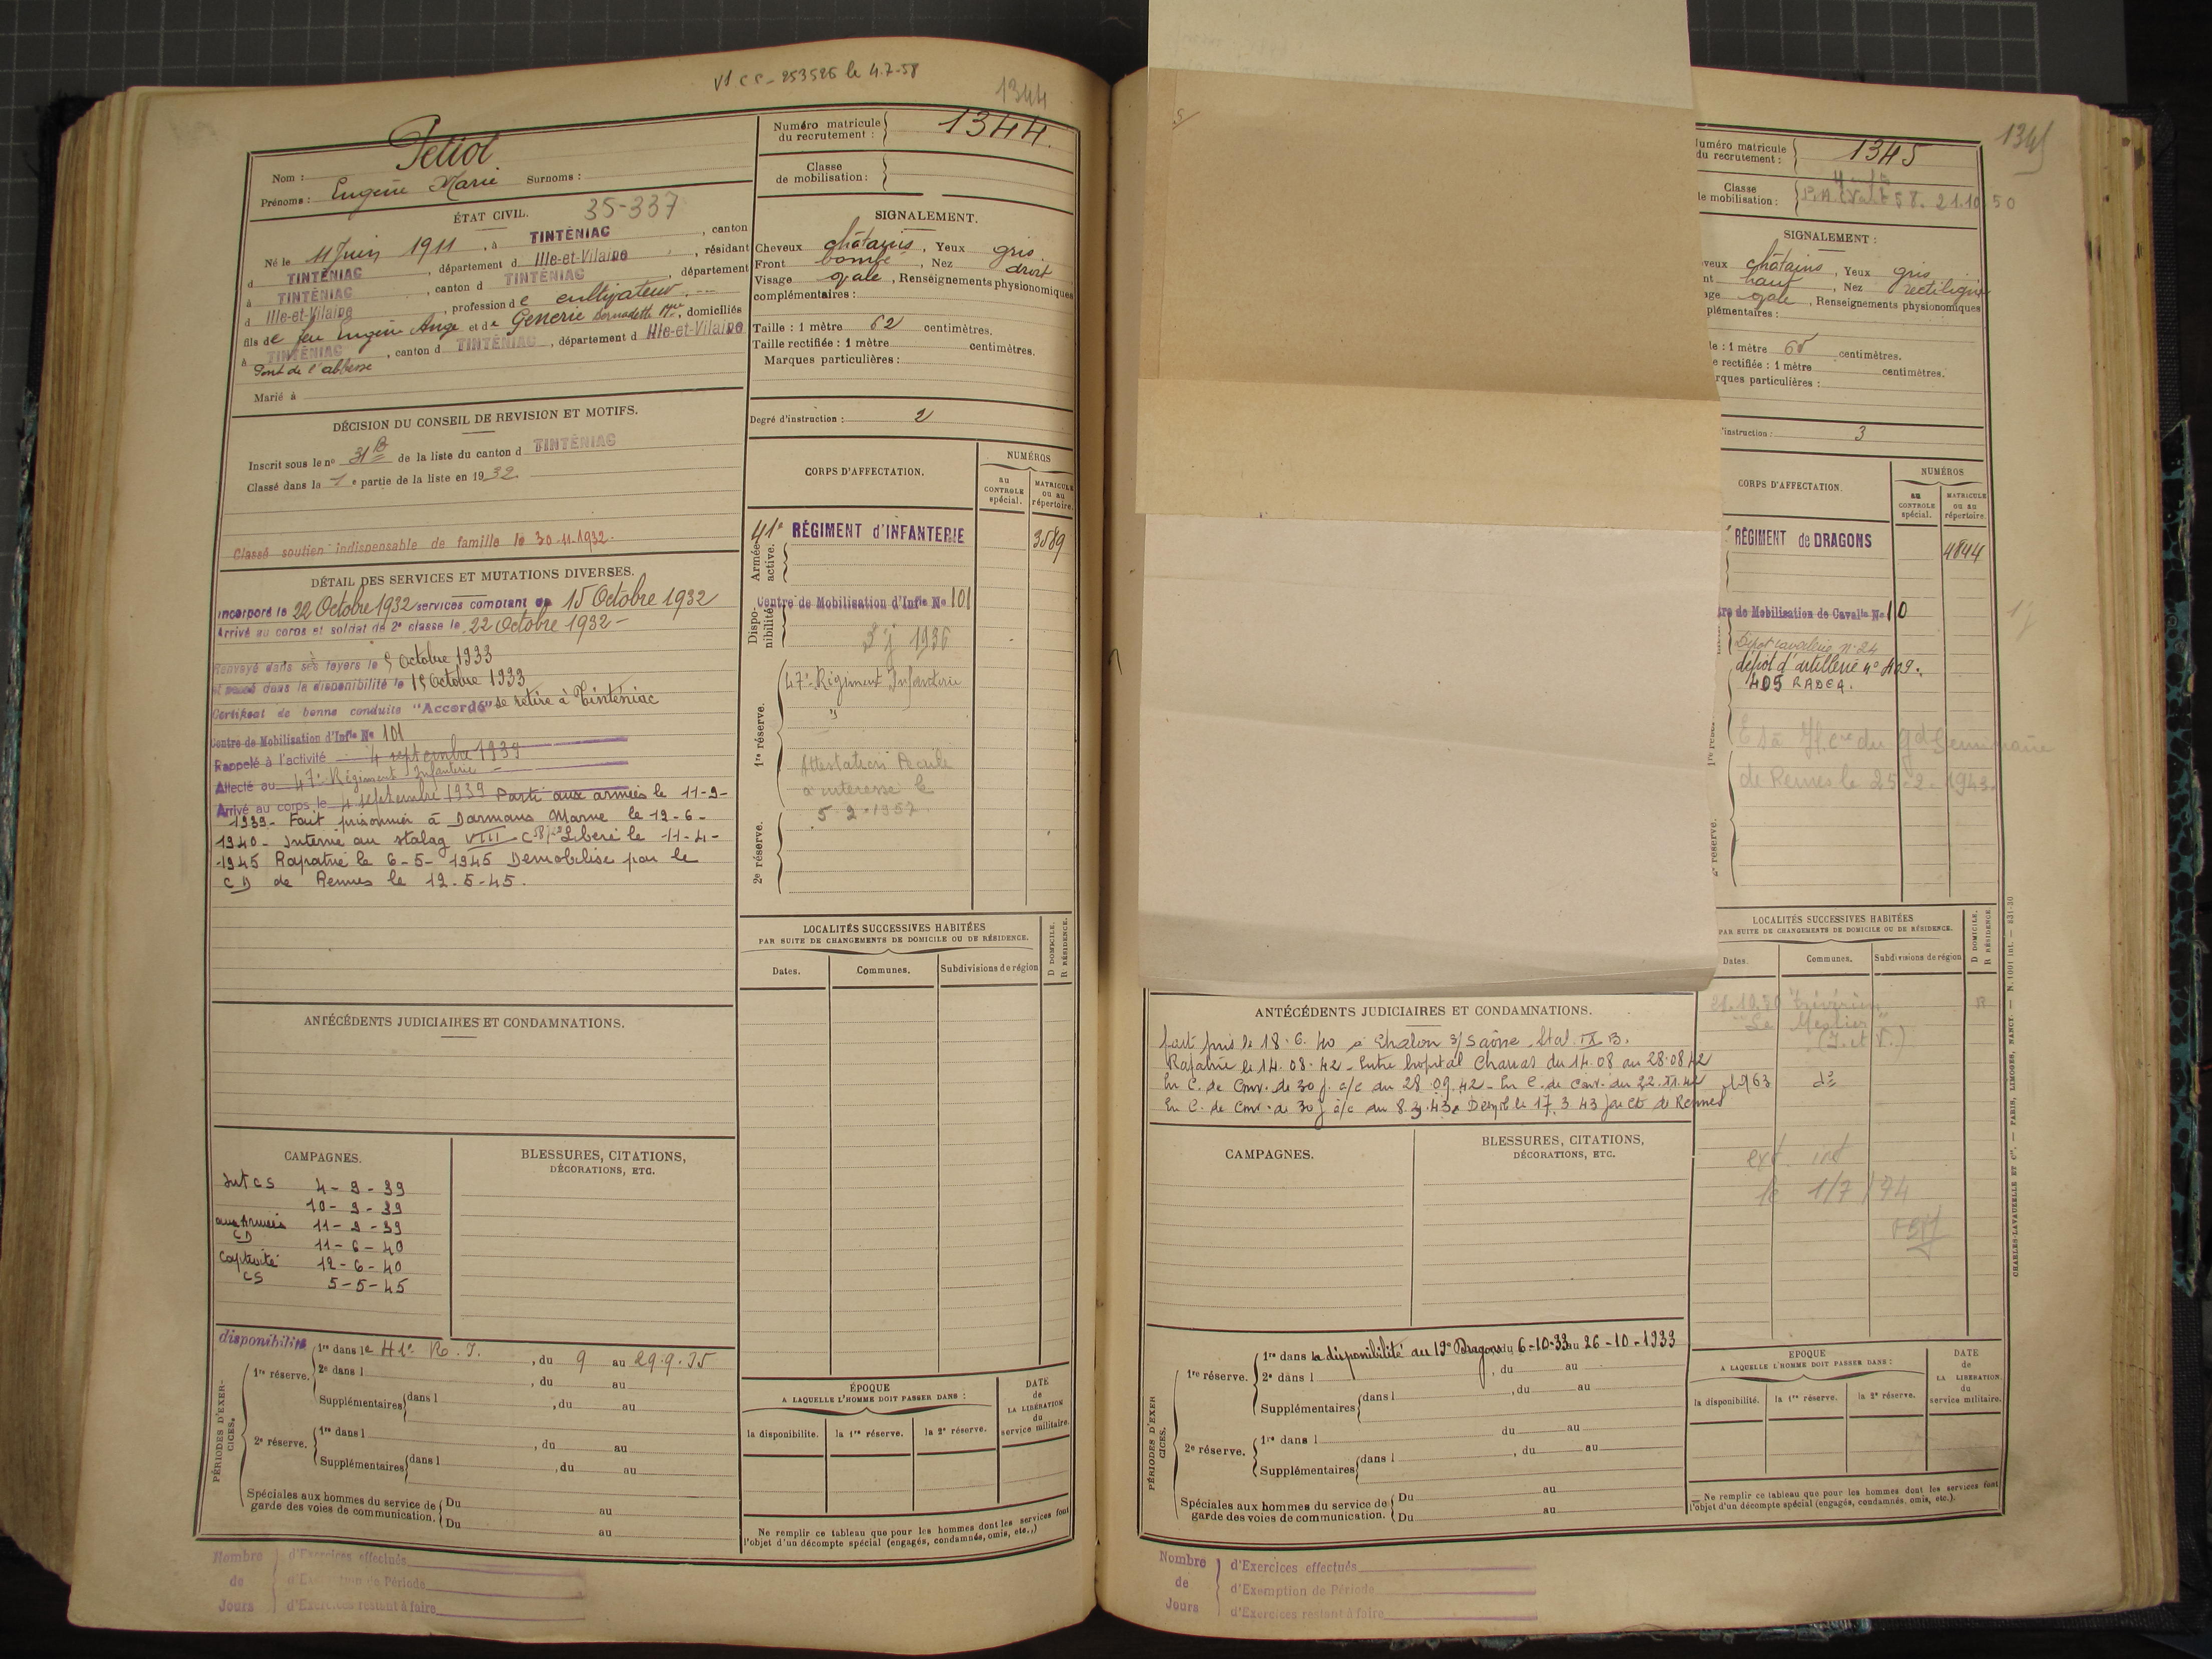 V1 CC - 253526 le 4-7-58
1344
Nom : Petiol
Prénoms : Eugène Marie Surnoms :
Numéro matricule du recrutement : 1344.
Classe de mobilisation :
ÉTAT CIVIL. 35-337
Né le 4 Juin 1911, à TINTÉNIAC, canton
d TINTÉNIAC, département d Ille-et-Vilaine, résidant
à TINTÉNIAC, canton d TINTÉNIAC, département
d Ille-et-Vilaine, profession de cultivateur
fils de feu Eugène Ange et de Generie Bernadette Mie, domiciliés
à TINTÉNIAC, canton d TINTÉNIAC, département d Ille-et-Vilaine
Pont de l'abbesse
Marié à
SIGNALEMENT.
Cheveux châtains, Yeux gris.
Front bombé, Nez droit
Visage ovale, Renseignements physionomiques
complémentaires :
Taille : 1 mètre 62 centimètres.
Taille rectifiée : 1 mètre centimètres.
Marques particulières :
Degré d'instruction : 2
DÉCISION DU CONSEIL DE REVISION ET MOTIFS.
Inscrit sous le no 31 B de la liste du canton d TINTÉNIAC
Classé dans la 1e partie de la liste en 1932.
Classé soutien indispensable de famille le 30-11-1932.
DÉTAIL DES SERVICES ET MUTATIONS DIVERSES.
Incorporé le 22 Octobre 1932 services comptant du 15 Octobre 1932
Arrivé au corps et soldat de 2e classe le 22 Octobre 1932 -
Renvoyé dans ses foyers le 5 Octobre 1933
et passé dans la disponibilité le 15 Octobre 1933
Certificat de bonne conduite "Accordé" se retire à Tinténiac
Centre de Mobilisation d'Infie No 101
Rappelé à l'activité 4 septembre 1939
Affecté au 47e Régiment Infanterie
Arrivé au corps le 4 septembre 1939 Parti aux armées le 11-9-
1939 - Fait prisonnier à Darmans Marne le 12-6-
1940 - Interné au stalag VIII C Libéré le 11-4-
1945 Rapatrié le 6-5-1945 Démobilisé par le
CD de Rennes le 12-5-45.
CORPS D'AFFECTATION.
NUMÉROS
au CONTROLE spécial.
MATRICULE ou au répertoire.
Armée active.
41e RÉGIMENT d'INFANTERIE 3589
Disponibilité
Centre de Mobilisation d'Infie No 101
1936
1re réserve.
47e Régiment Infanterie
"
Attestation
a interesse le
5-2-1957
2e réserve.
LOCALITÉS SUCCESSIVES HABITÉES
PAR SUITE DE CHANGEMENTS DE DOMICILE OU DE RÉSIDENCE.
D DOMICILE.
R RÉSIDENCE.
Dates. Communes. Subdivisions de région
ANTÉCÉDENTS JUDICIAIRES ET CONDAMNATIONS.
CAMPAGNES.
BLESSURES, CITATIONS,
DÉCORATIONS, ETC.
Int CS 4-9-39
10-9-39
aux Armées 11-9-39
CD 11-6-40
Captivité 12-6-40
CS 5-5-45
PÉRIODES D'EXERCICES.
disponibilité
1re réserve. 1re dans le 41e R.I., du 9 au 29.9.35
2e dans l , du au
Supplémentaires dans l , du au
2e réserve. 1re dans l , du au
Supplémentaires dans l , du au
Spéciales aux hommes du service de garde des voies de communication. Du au
Du au
ÉPOQUE
A LAQUELLE L'HOMME DOIT PASSER DANS :
la disponibilité. la 1re réserve. la 2e réserve.
DATE de LA LIBÉRATION du service militaire.
Ne remplir ce tableau que pour les hommes dont les services font
l'objet d'un décompte spécial (engagés, condamnés, omis, etc.,)
Nombre de Jours
d'Exercices effectués
d'Exemption de Période
d'Exercices restant à faire
1345
uméro matricule
du recrutement : 1345
Classe
e mobilisation : 58. 21.10.50
SIGNALEMENT :
veux châtains, Yeux gris
nt haut, Nez rectiligne
age ovale, Renseignements physionomiques
plémentaires :
le : 1 mètre 65 centimètres.
e rectifiée : 1 mètre centimètres.
rques particulières :
'instruction : 3
CORPS D'AFFECTATION.
NUMÉROS
au CONTROLE spécial.
MATRICULE ou au répertoire.
RÉGIMENT de DRAGONS 4844
tre de Mobilisation de Cavalie No 10
Dépôt cavalerie No 24
dépôt d'artillerie no 409.
405 RADCA.
du gd Séminaire
de Rennes le 25-2-1943.
2e réserve.
LOCALITÉS SUCCESSIVES HABITÉES
PAR SUITE DE CHANGEMENTS DE DOMICILE OU DE RÉSIDENCE.
D DOMICILE.
R RÉSIDENCE.
Dates. Communes. Subdivisions de région
21.10.50 Trévérien R
(I. et V.)
1963 do
ext. int
le 1/7/94
ANTÉCÉDENTS JUDICIAIRES ET CONDAMNATIONS.
fait pris. le 18.6.40 à Chalon s/Saône - Stal. IX B.
Rapatrié le 14.08.42 - Entre hôpital du 14.08 au 28.08.42
En C. de Conv. de 30 j. à/c du 28.09.42 - En C. de Conv. du 22.XI.42
En C. de Conv. de 30 j à/c du 8.2.43. Démob le 17.3.43 par CD de Rennes
CAMPAGNES.
BLESSURES, CITATIONS,
DÉCORATIONS, ETC.
PÉRIODES D'EXERCICES.
1re réserve. 1re dans la disponibilité au 19e Dragons du 6-10-33 au 26-10-1933
2e dans l , du au
Supplémentaires dans l , du au
2e réserve. 1re dans l du au
Supplémentaires dans l , du au
Spéciales aux hommes du service de garde des voies de communication. Du au
Du au
ÉPOQUE
A LAQUELLE L'HOMME DOIT PASSER DANS :
la disponibilité. la 1re réserve. la 2e réserve.
DATE de LA LIBÉRATION du service militaire.
Ne remplir ce tableau que pour les hommes dont les services font
l'objet d'un décompte spécial (engagés, condamnés, omis, etc.).
CHARLES-LAVAUZELLE ET Cie. — PARIS, LIMOGES, NANCY. — N. 1001 int. — 831-30
Nombre de Jours
d'Exercices effectués
d'Exemption de Période
d'Exercices restant à faire